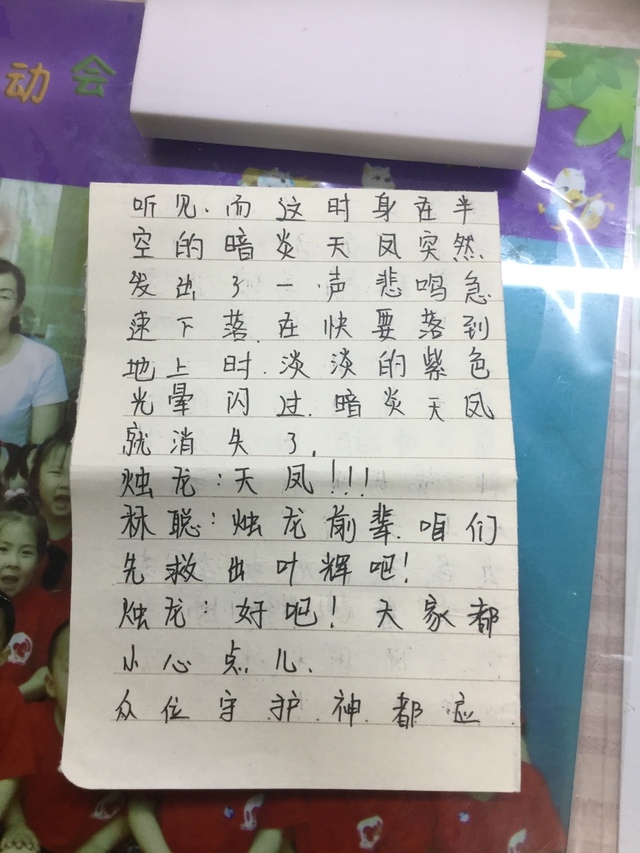 动会
听见.而这时身在半
空的暗炎天凤突然
发出了一声悲鸣急
速下落.在快要落到
地上时.淡淡的紫色
光晕闪过.暗炎天凤
就消失了,
烛龙:天凤!!!
林聪:烛龙前辈.咱们
先救出叶辉吧!
烛龙:好吧!大家都
小心点儿.
众位守护神都应